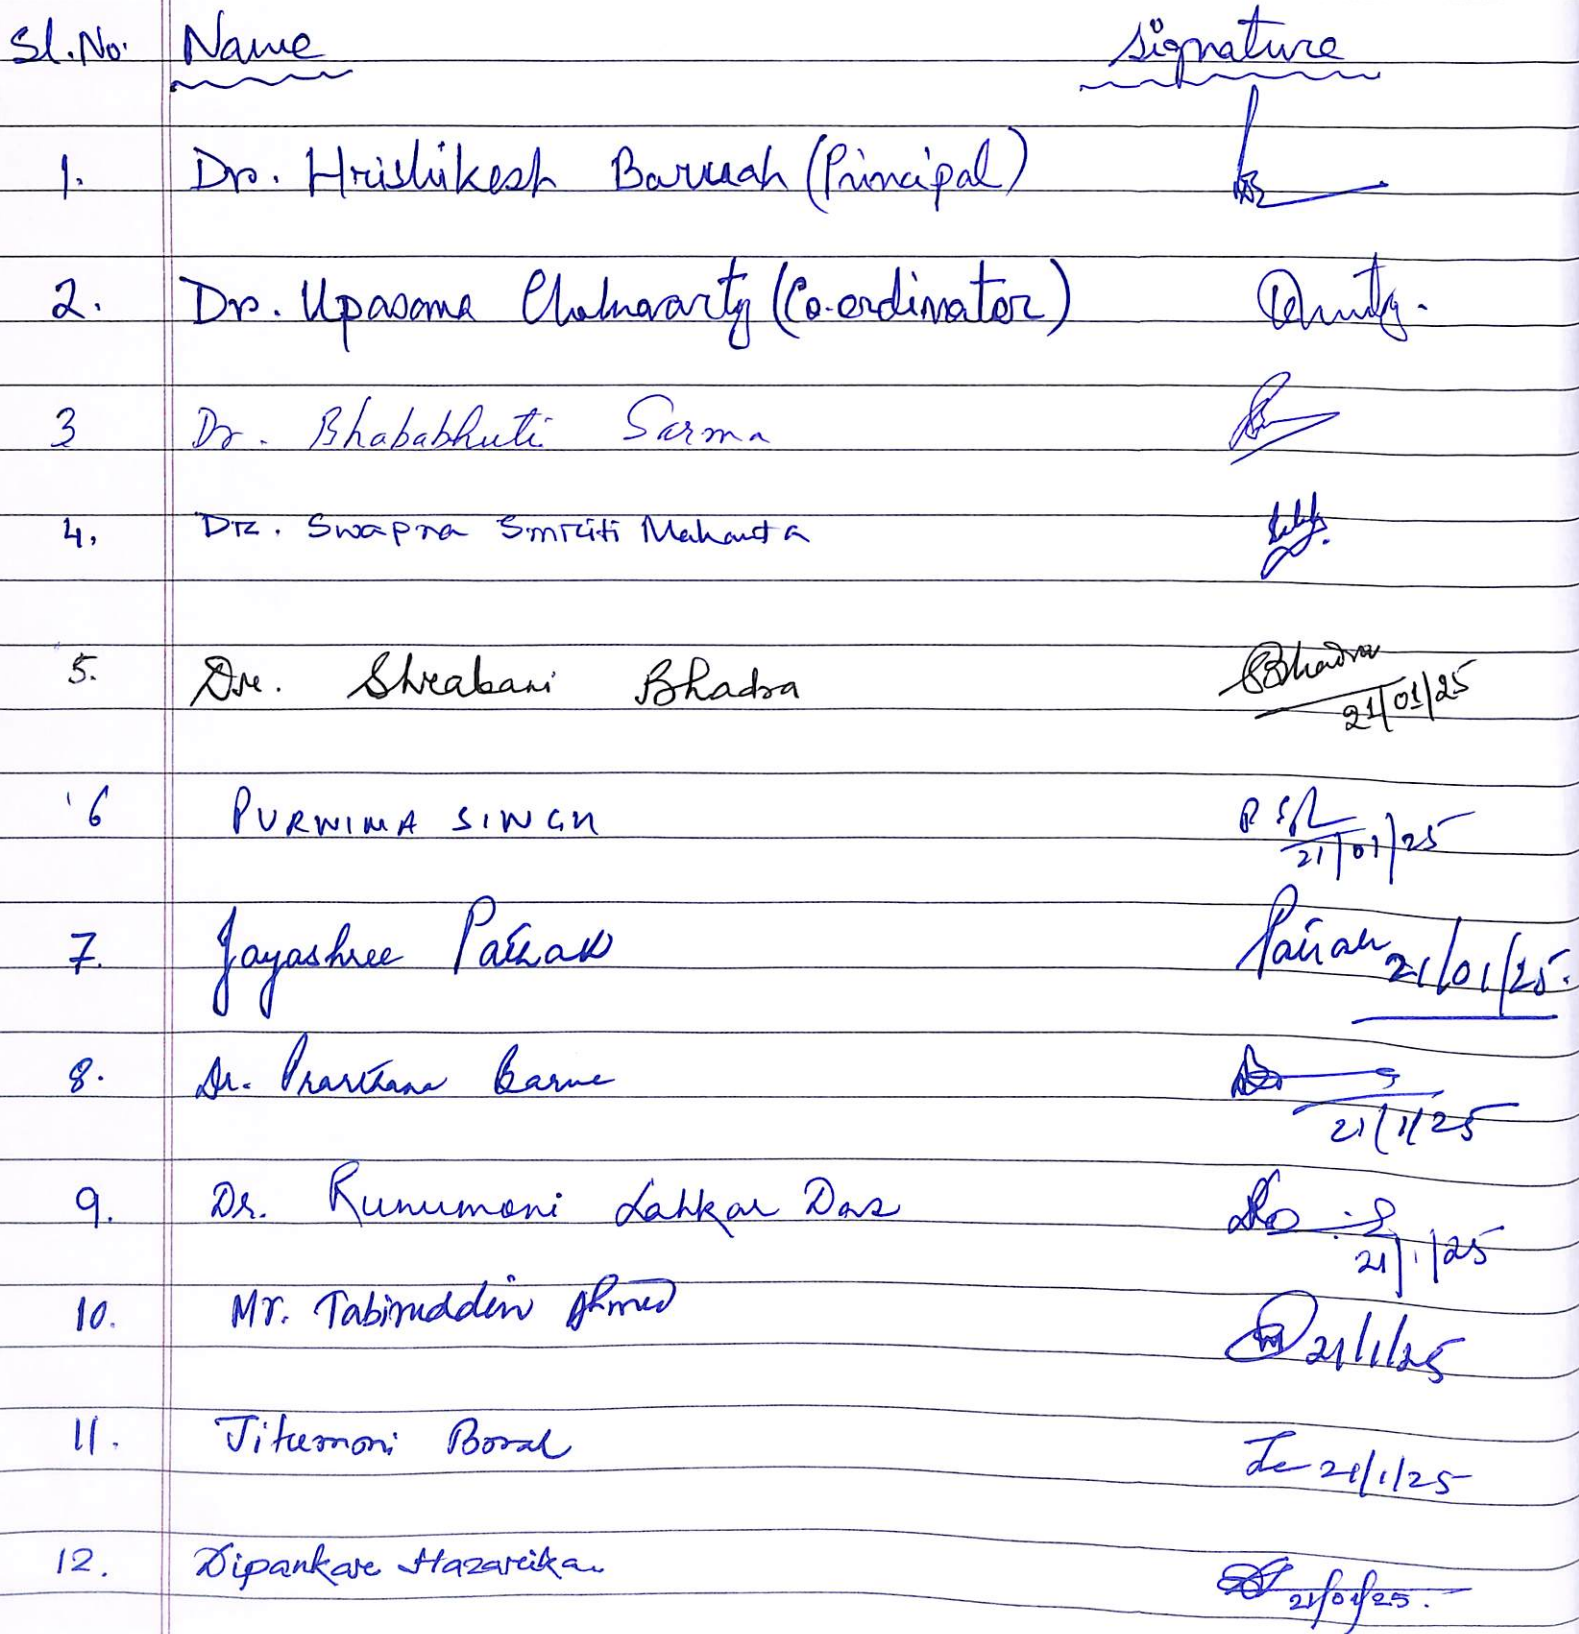 Sl. No. Name Signature
1. Dr. Hrishikesh Baruah (Principal)
2. Dr. Upasana Chakravarty (Co-ordinator)
3 Dr. Bhababhuti Sarma
4. Dr. Swapna Smriti Mahanta
5. Dr. Shrabani Bhadra SBhadra
21/01/25
6 PURNIMA SINGH
21/01/25
7. Jayashree Pathak Pathak 21/01/25.
8. Dr. Prarthana Barua
21/1/25
9. Dr. Runumoni Lahkar Das
21/1/25
10. Mr. Tabiruddin Ahmed
21/1/25
11. Jitumoni Borah
21/1/25
12. Dipankar Hazarika
21/01/25.